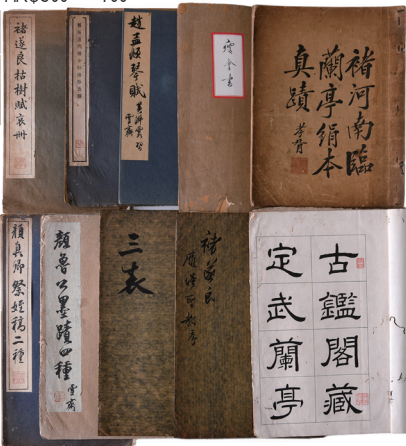 褚遂良枯樹賦哀冊
趙孟頫琴賦
雲齋
瘦金書
褚河南臨
蘭亭絹本
真蹟
顏真卿祭姪稿二種
顏魯公墨蹟四種
雲齋
三表
褚遂良
古鑑閣藏
定武蘭亭